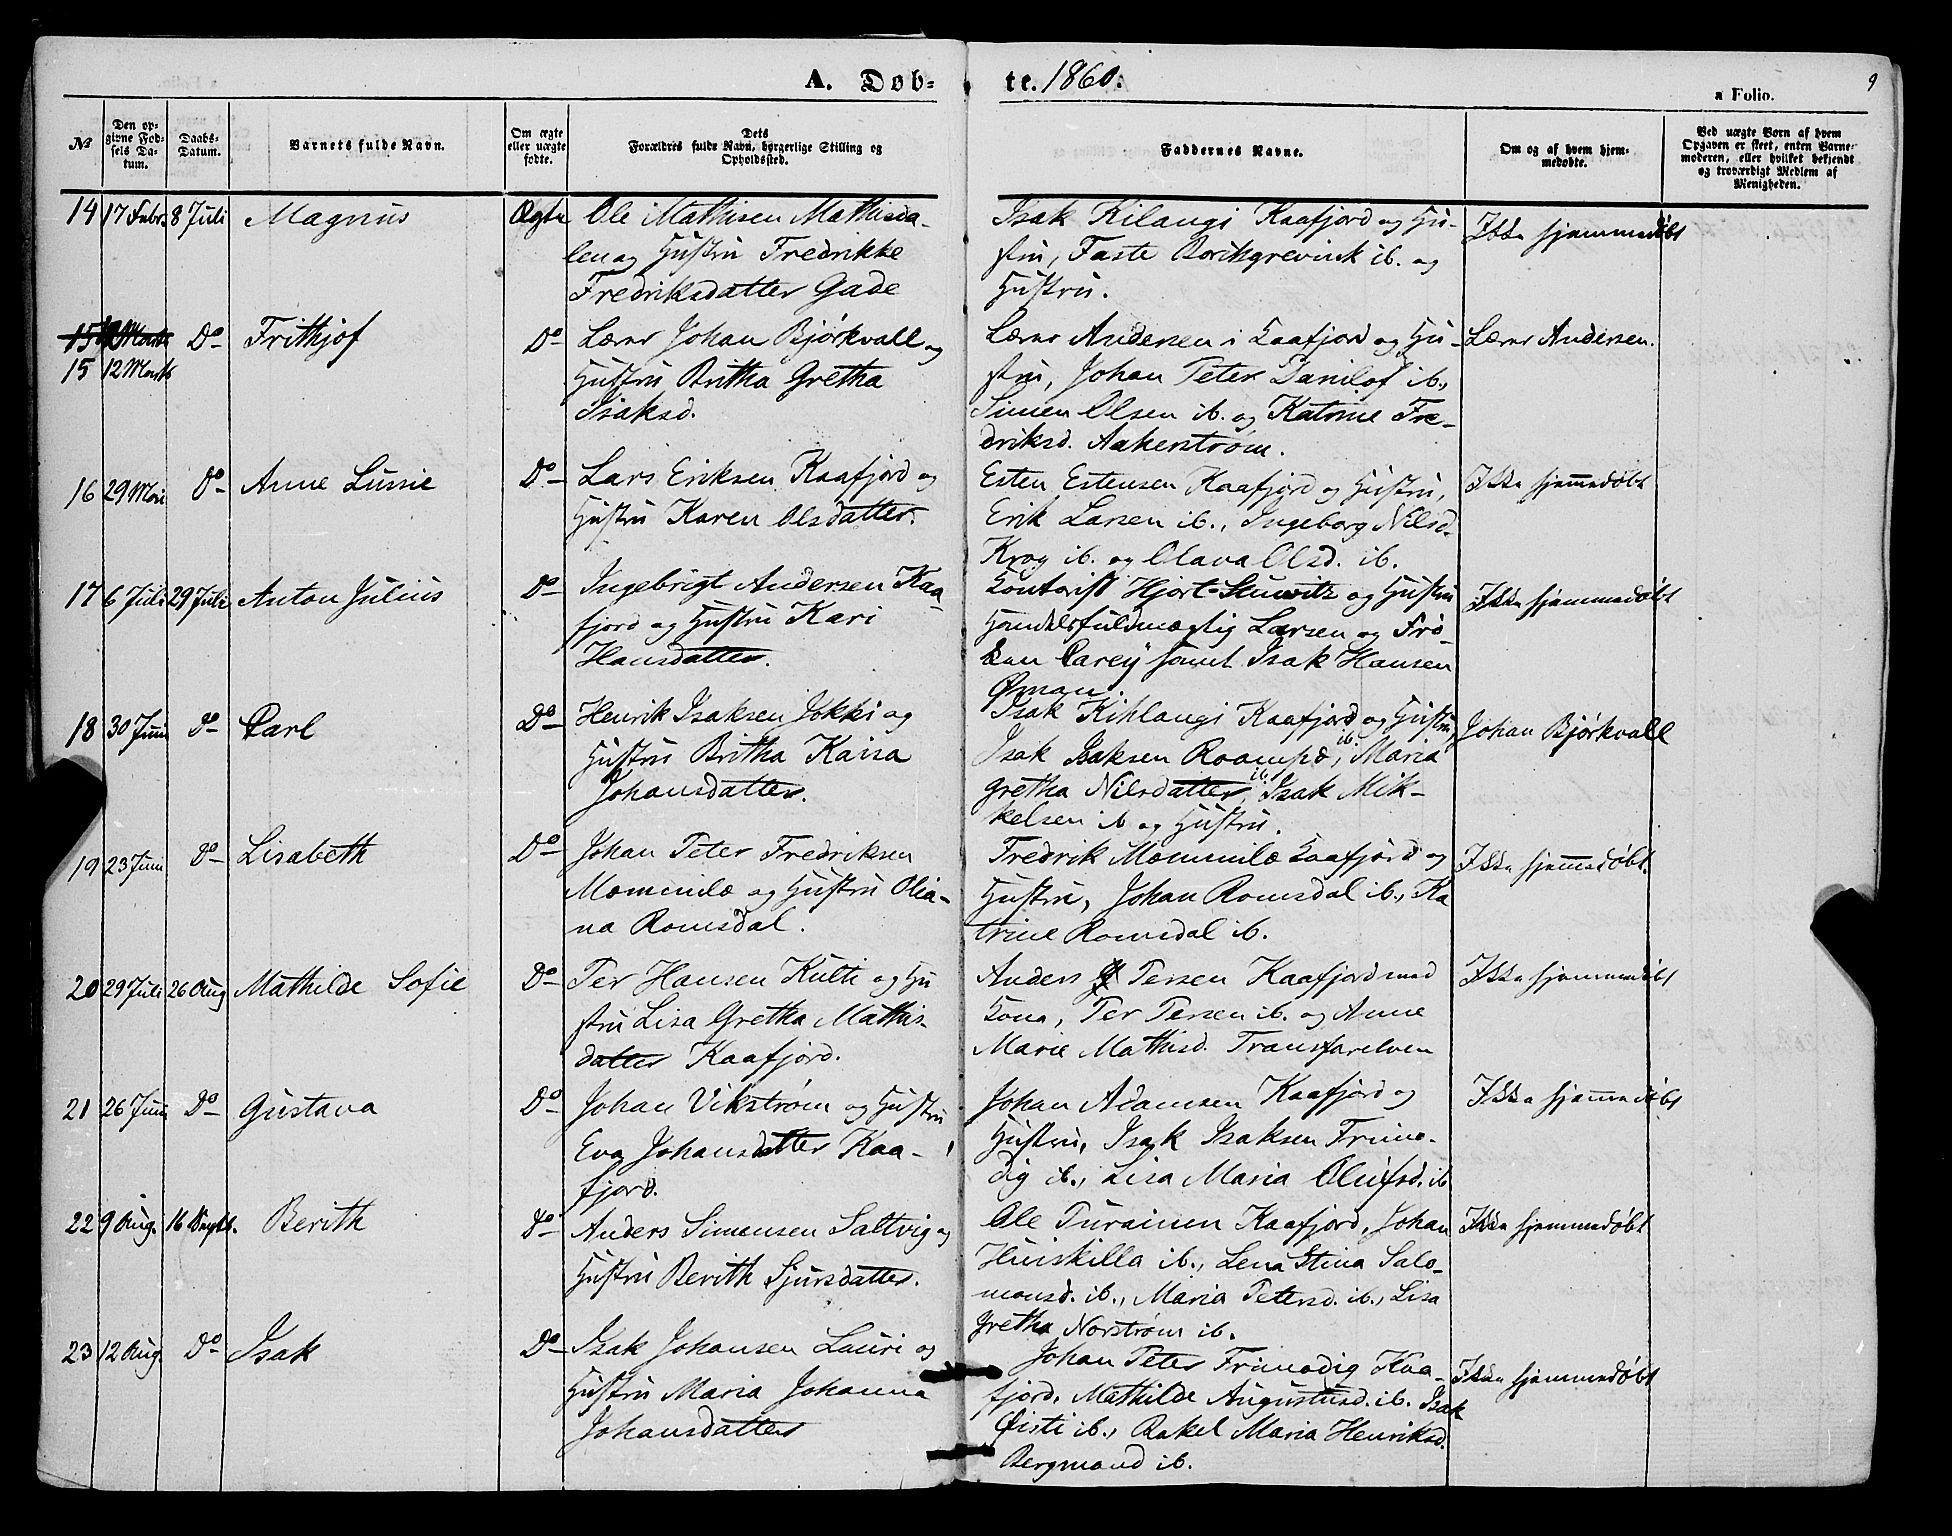 A. Døb-
te. 1860.
9
a Folio.
№
Den op-
givne Fød-
sels Da-
tum.
Daabs-
Datum.
Barnets fulde Navn.
Om ægte
eller uægte
fødte.
Dets
Forældres fulde Navn, borgerlige Stilling og
Opholdssted.
Faddernes Navne.
Om og af hvem hjem-
medøbte.
Ved uægte Børn af hvem
Opgaven er skeet, enten Barne-
moderen, eller hvilket bekjendt
og troværdigt Medlem af
Menigheden.
14 17 Febr. 8 Juli Magnus Ægte Ole Mathisen Mathisda-
len og Hustru Fredrikke
Fredriksdatter Gade
Isak Kilangi Kaafjord og Hu-
stru, Faste Borchgrevink ib. og
Hustru.
Ikke hjemmedøbt
15 12 Marts
15 12 Marts Do Frithjof Do Lærer Johan Bjørkvall og
Hustru Britha Gretha
Isaksd.
Lærer Andersen i Kaafjord og Hu-
stru, Johan Peter Danilof ib.,
Simen Olsen ib. og Katrine Fre-
driksd. Aakerstrøm.
Lærer Andersen.
16 29 Mai Do Anne Lussie Do Lars Eriksen Kaafjord og
Hustru Karen Olsdatter.
Esten Estensen Kaafjord og Hustru,
Erik Larsen ib., Ingeborg Nilsd.
Krog ib. og Olava Olsd. ib.
Ikke hjemmedøbt
17 6 Juli 29 Juli Anton Julius Do Ingebrigt Andersen Kaa-
fjord og Hustru Kari
Hansdatter.
Kontorist Hjort-Stuwitz og Hustru
Handelsfuldmægtig Larsen og Frø-
ken Carey samt Isak Hansen
Øman.
Ikke hjemmedøbt
18 30 Juni Do Carl Do Henrik Isaksen Jokki og
Hustru Britha Kaisa
Johansdatter.
Isak Kihlangi Kaafjord og Hustru,
Isak Isaksen Roampæ, ib. Maria
Gretha Nilsdatter, ib. Isak Mik-
kelsen ib og Hustru.
Johan Bjørkvall
19 23 Juni Do Lisabeth Do Johan Peter Fredriksen
Mommilæ og Hustru Olia-
na Romsdal.
Fredrik Mommilæ Kaafjord og
Hustru, Johan Romsdal ib., Ka
trine Romsdal ib.
Ikke hjemmedøbt.
20 29 Juli 26 Aug Mathilde Sofie Do Per Hansen Kulti og Hu
stru Lisa Gretha Mathis-
datter Kaafjord.
Anders Persen Kaafjord med
Kone, Per Persen ib. og Anne
Marie Mathisd. Transfarelven
Ikke hjemmedøbt
21 26 Juni Do Gustava Do Johan Vikstrøm og Hustru
Eva Johansdatter Kaa-
fjord.
Johan Adamsen Kaafjord og
Hustru, Isak Isaksen Frimo-
dig ib., Lisa Maria Olufsd. ib
Ikke hjemmedøbt
22 9 Aug. 16 Septb. Berith Do Anders Simensen Saltvig og
Hustru Berith Sjursdatter.
Ole Turainen Kaafjord, Johan
Huiskilla ib., Lena Stina Salo-
monsd. ib., Maria Petersd. ib., Lisa
Gretha Norstrøm ib.
Ikke hjemmedøbt
23 12 Aug. Do Isak Do Isak Johansen Lauri og
Hustru Maria Johanna
Johansdatter
Johan Peter Frimodig Kaa-
fjord, Mathilde Augustusd. ib. Isak
Øisti ib., Rakel Maria Henriksd.
Bergmand ib.
Ikke hjemmedøbt